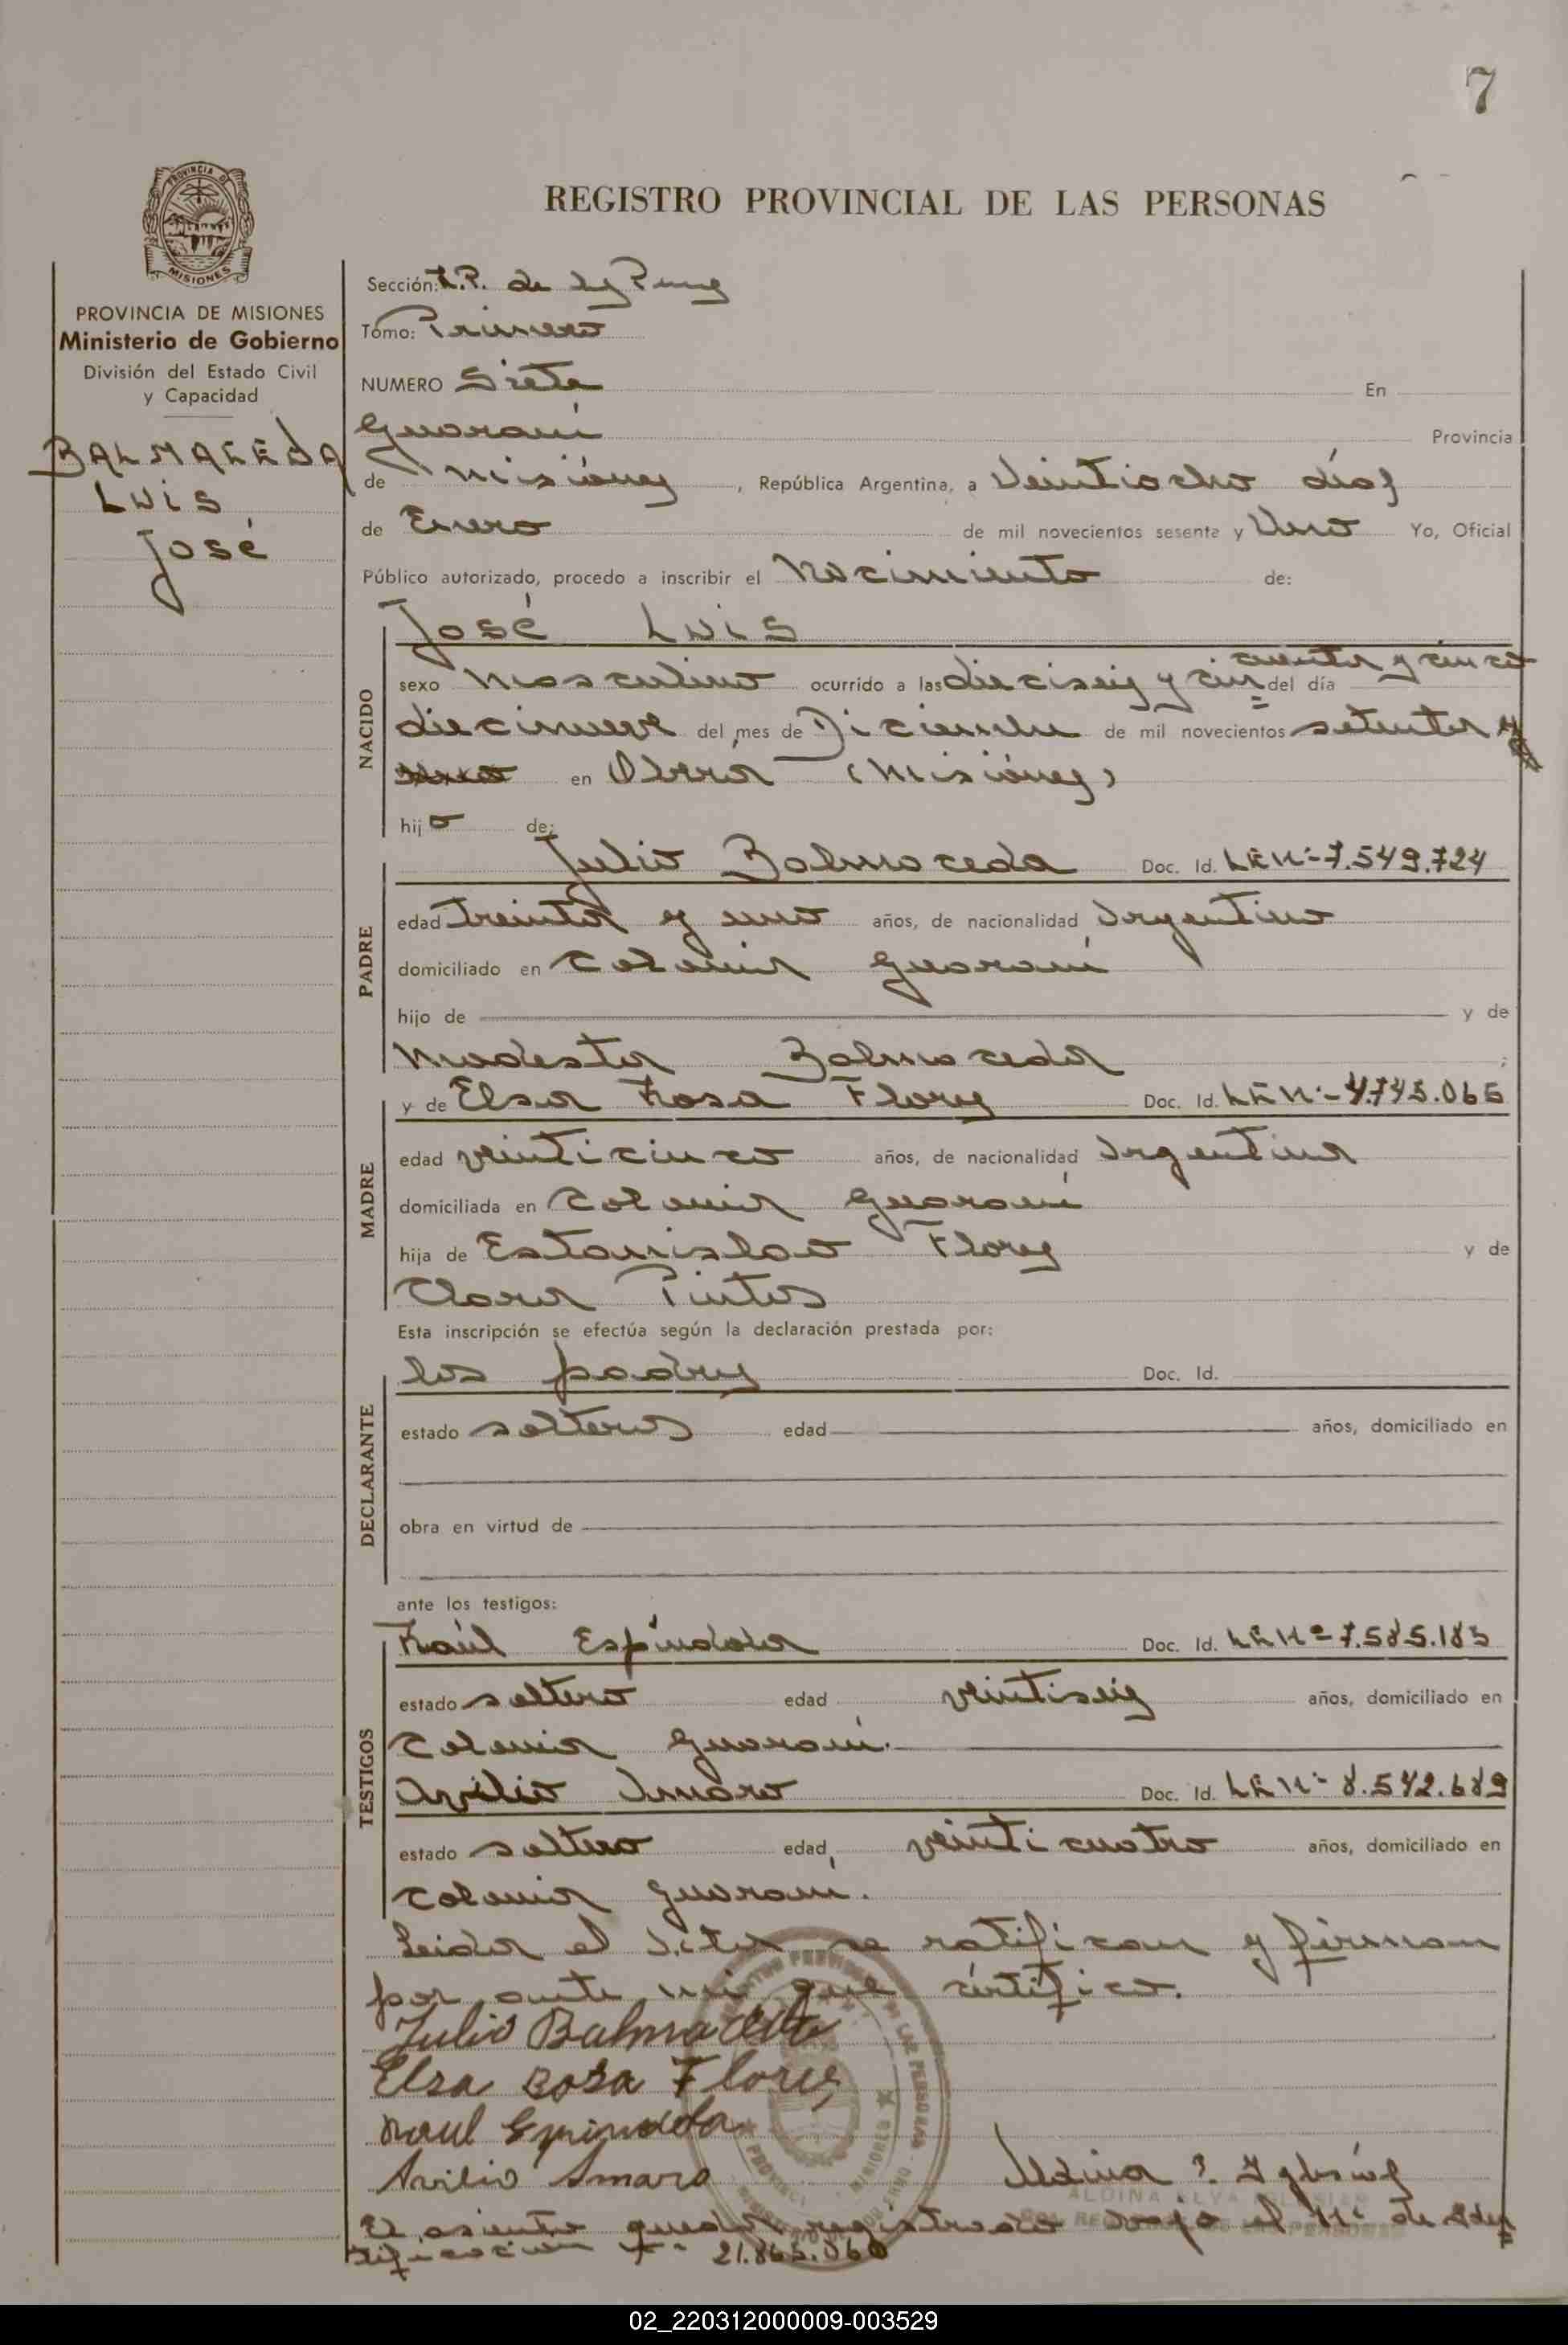 7
PROVINCIA DE
MISIONES
REGISTRO PROVINCIAL DE LAS PERSONAS
PROVINCIA DE MISIONES
Ministerio de Gobierno
División del Estado Civil
y Capacidad
BALMACEDA
LUIS
José
Sección: R.P. de las
Tomo: Primero
NUMERO Siete En
Guaraní Provincia
de Misiónes, República Argentina, a Veintiocho días
de Enero de mil novecientos sesenta y Uno Yo, Oficial
Público autorizado, procedo a inscribir el Nacimiento de:
NACIDO
José Luis
sexo Masculino ocurrido a las dieciseis y cin cuenta y cinco del día
diecinueve del mes de Diciembre de mil novecientos setenta y
en Oberá (Misiónes)
hijo de:
PADRE
Julio Balmaceda Doc. Id. LE Nº 7.549.724
edad Treinta y uno años, de nacionalidad Argentino
domiciliado en Colonia Guaraní
hijo de y de
Modesta Balmaceda ;
MADRE
y de Elsa Rosa Flores Doc. Id. LE Nº 4.745.065
edad veinticinco años, de nacionalidad Argentina
domiciliada en Colonia Guaraní
hija de Estanislao Flores y de
Clara Pintos
DECLARANTE
Esta inscripción se efectúa según la declaración prestada por:
los padres Doc. Id.
estado solteros edad años, domiciliado en
obra en virtud de
TESTIGOS
ante los testigos:
Raúl Espíndola Doc. Id. LE Nº 7.585.183
estado soltero edad veintiseis años, domiciliado en
Colonia Guaraní.
Avilio Amaro Doc. Id. LE Nº 8.542.689
estado soltero edad veinticuatro años, domiciliado en
Colonia Guaraní.
Leida el Acta se ratifican y firman
por ante mi que certifico.
Julio Balmaceda
Elsa Rosa Flores
Raul Espindola
Avilio Amaro
Aldina E. Iglesias
ALDINA ELVA IGLESIAS
El asiento queda registrado bajo el Nº de Iden
tificacion Nº 21.865.060
02_220312000009-003529